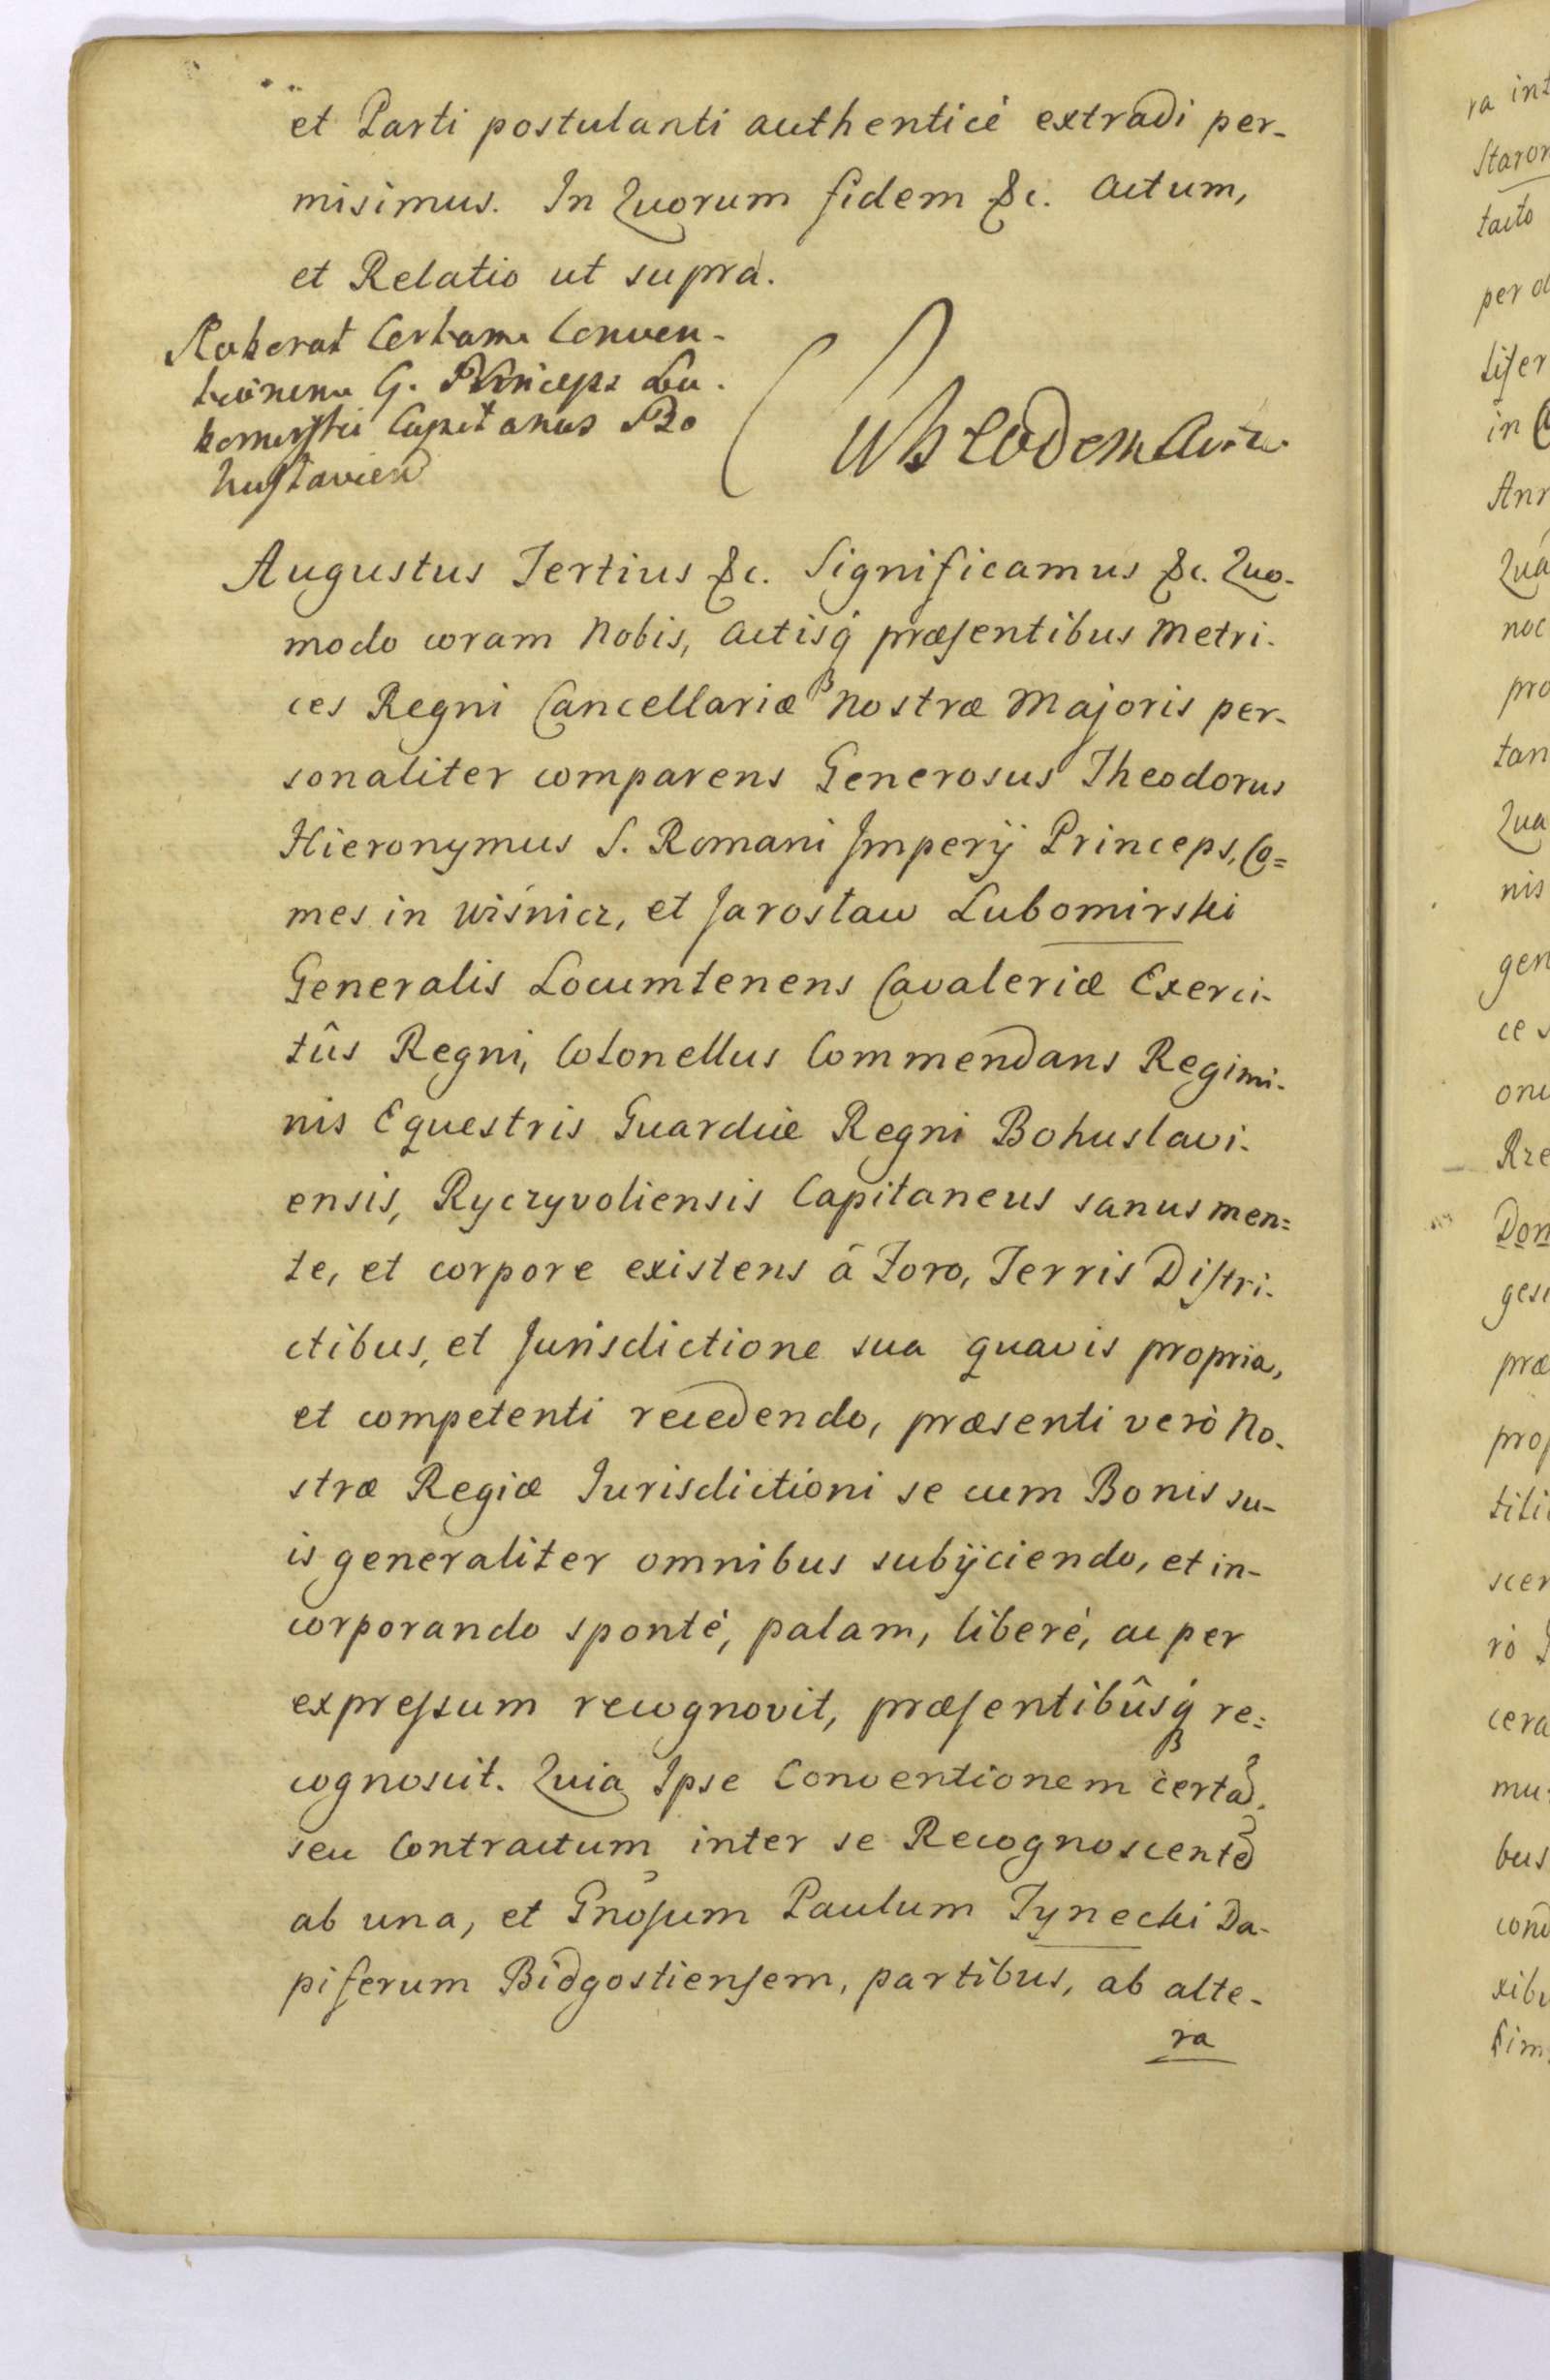 et Parti postulanti authenticè extradi per-
misimus. In Quorum fidem &c. Actum,
et Relatio ut supra.
Roborat Certam Conven-
tionem G. Princeps Lu-
bomirski Capitaneus Bo
huslavien
Sub eodem Actu
Augustus Tertius &c. Significamus &c. Quo-
modo coram Nobis, Actisq́ præsentibus Metri-
ces Regni Cancellariæ Nostræ Majoris per-
sonaliter comparens Generosus Theodorus
Hieronymus S. Romani Imperij Princeps, Co=
mes in Wiśnicz, et Jarosław Lubomirski
Generalis Locumtenens Cavaleriæ Exerci-
tûs Regni, Colonellus Commendans Regimi-
nis Equestris Guardiæ Regni Bohuslavi-
ensis, Ryczyvoliensis Capitaneus sanus men=
te, et corpore existens á Foro, Terris Distri-
ctibus, et Jurisdictione sua quavis propria,
et competenti recedendo, præsenti verò No-
stræ Regiæ Jurisdictioni se cum Bonis su-
is generaliter omnibus subijciendo, et in-
corporando spontè, palam, liberè, ac per
expressum recognovit, præsentibûsq́ re=
cognoscit. Quia Ipse Conventionem certã
seu Contractum inter se Recognoscentẽ
ab una, et Gnosum Paulum Tynecki Da-
piferum Bidgostiensem, partibus, ab alte-
ra
ra int
Staron
tacto
per
in
Ann
Quá
noc
pro
tan
Qua
nis
gen
ce
Rze
Dom
præ
prop
scen
rò
cera
mu
bus
cond
xibu